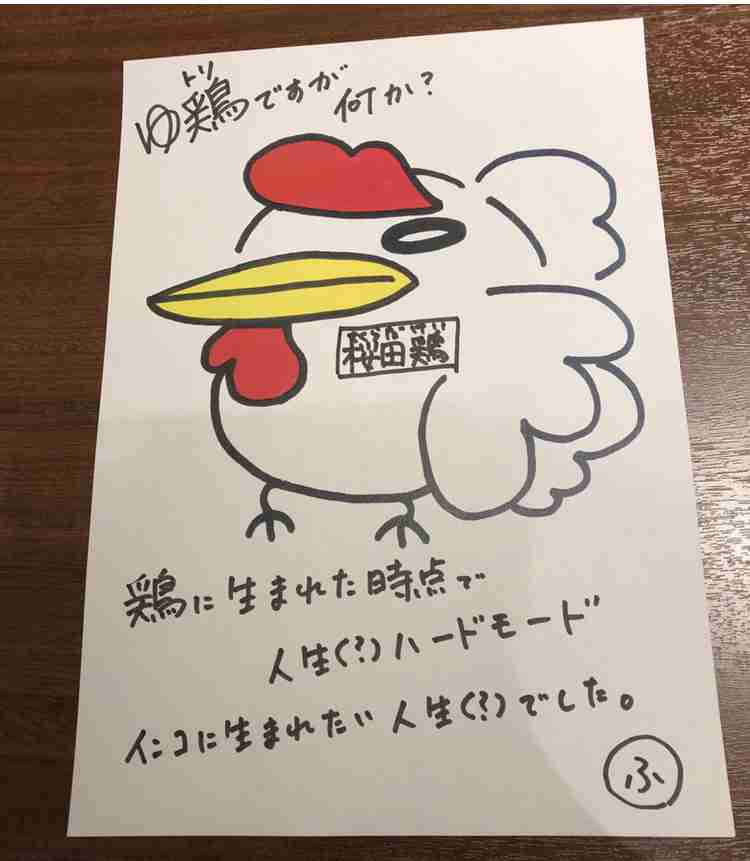 トリ
ゆ鶏ですが
何か？
さくらだけい
桜田鶏
鶏に生まれた時点で
人生(?)ハードモード
インコに生まれたい人生(?)でした。
ふ